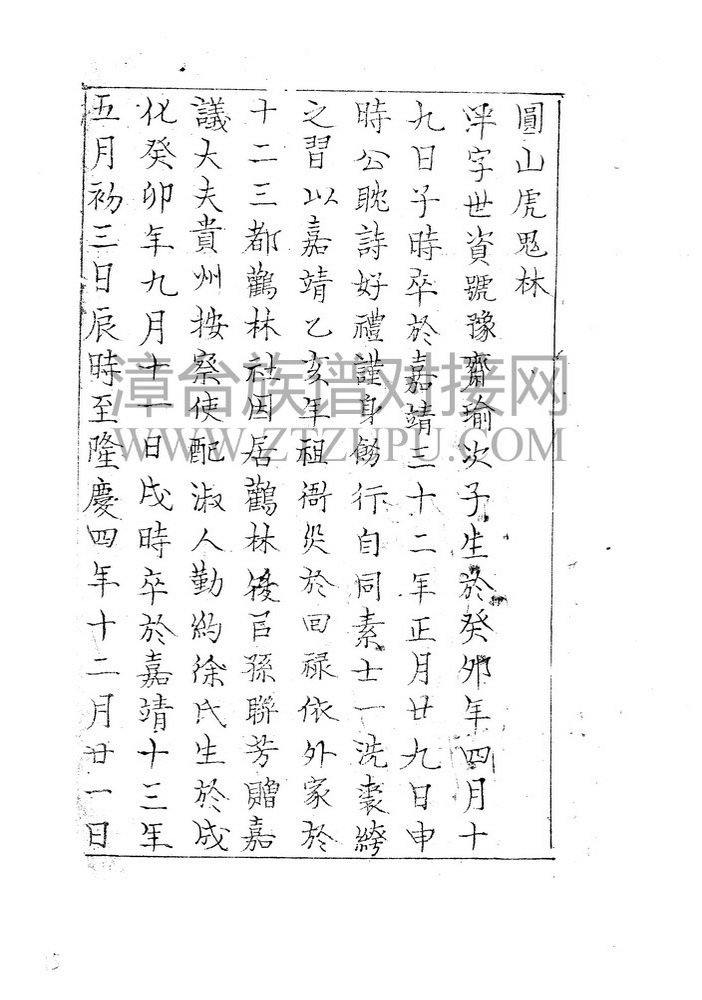 圓山虎鬼林
泙字世資號豫齋瑜次子生於癸卯年四月十
九日子時卒於嘉靖三十二年正月廿九日申
時公耽詩好禮謹身飭行自同素士一洗裘綺
之習以嘉靖乙亥年祖衙災於回禄依外家於
十二三都鸛林社因居鸛林後以孫聯芳贈嘉
議大夫貴州按察使配淑人勤約徐氏生於成
化癸卯年九月十一日戌時卒於嘉靖十三年
五月初三日辰時至隆慶四年十二月廿一日
漳台族谱对接网
WWW.ZTZUPU.COM